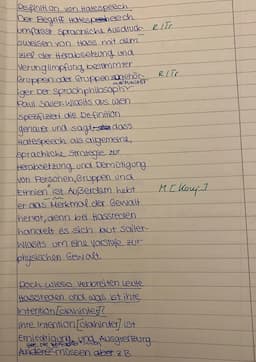 Definition von Hatespeech
Der Begriff Hatespeech R/Tr
umfasst sprachliche Ausdruck
sweisen von Hass mit dem
Ziel der Herabsetzung und
Verunglimpfung bestimmter
Gruppen oder Gruppenzugehör R/Tr
iger. Der Sprachphilosoph
Paul Sailer-Wlasits aus Wien
spezifiziert die Definition
genauer und sagt, dass
Hatespeech als allgemeine,
sprachliche Strategie zur
Herabsetzung und Demütigung
von Personen, Gruppen und
Ethnien ist. Außerdem hebt M [Konj.]
er das Merkmal der Gewalt
hervor, denn bei Hassreden
handelt es sich laut Sailer-
Wlasits um eine Vorstufe zur
physischen Gewalt.
Doch wieso verbreiten Leute
Hassreden und was ist ihre
Intention [dahinter]?
Ihre Intention [dahinter] ist
Erniedrigung und Ausgrenzung
Anderer müssen aber z.B.